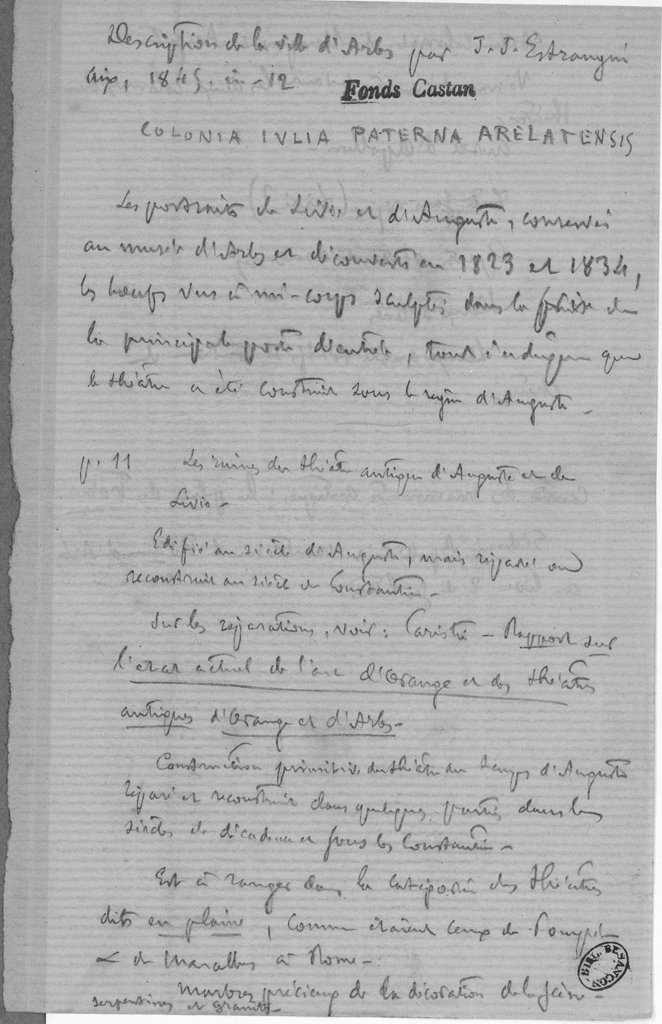 Description de la ville d'Arles par J. J. Estrangin
Aix, 1845, in-12
Fonds Castan
COLONIA IVLIA PATERNA ARELATENSIS
Les portraits de Livie et d'Auguste, conservés
au musée d'Arles et découverts en 1823 et 1834,
les bœufs vus à mi-corps sculptés dans la frise de
la principale porte d'entrée, tout indique que
le théâtre a été construit sous le règne d'Auguste.
p. 11 Les ruines du théâtre antique d'Auguste et de
Livie -
Edifié au siècle d'Auguste, mais réparé ou
reconstruit au siècle de Constantin -
Sur les réparations, voir : Caristie - Rapport sur
l'état actuel de l'arc d'Orange et des théâtres
antiques d'Orange et d'Arles -
Construction primitive du théâtre au temps d'Auguste
réparé et reconstruit dans quelques parties dans les
siècles de décadence et sous les Constantin -
Est à ranger dans la catégorie des théâtres
dits en plaine, comme étaient ceux de Pompée
& de Marcellus à Rome -
marbres précieux de la décoration de la scène -
serpentines et granits -
BIBL. BESANÇON